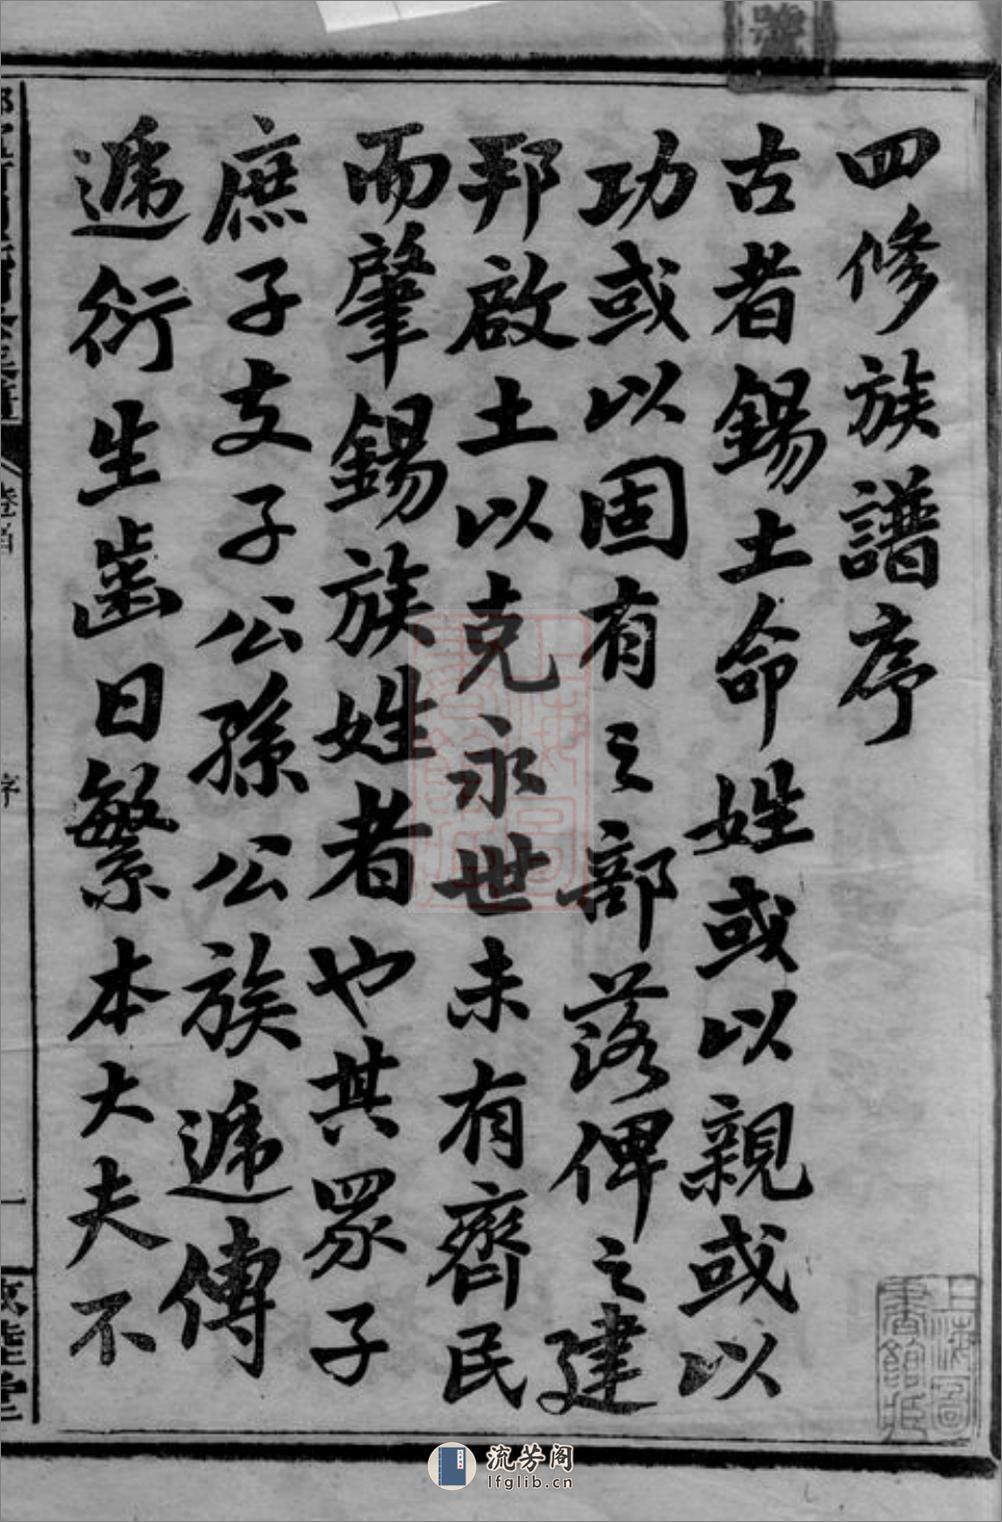 四修族譜序
古者錫土命姓或以親或以
功或以固有之部落俾之建
邦啟土以克永世未有齊民
而肇錫族姓者也其眾子
庶子支子公孫公族遞傳
遞衍生齒日繁本大夫不
卷首
序
一
堂
流芳阁
lfglib.cn